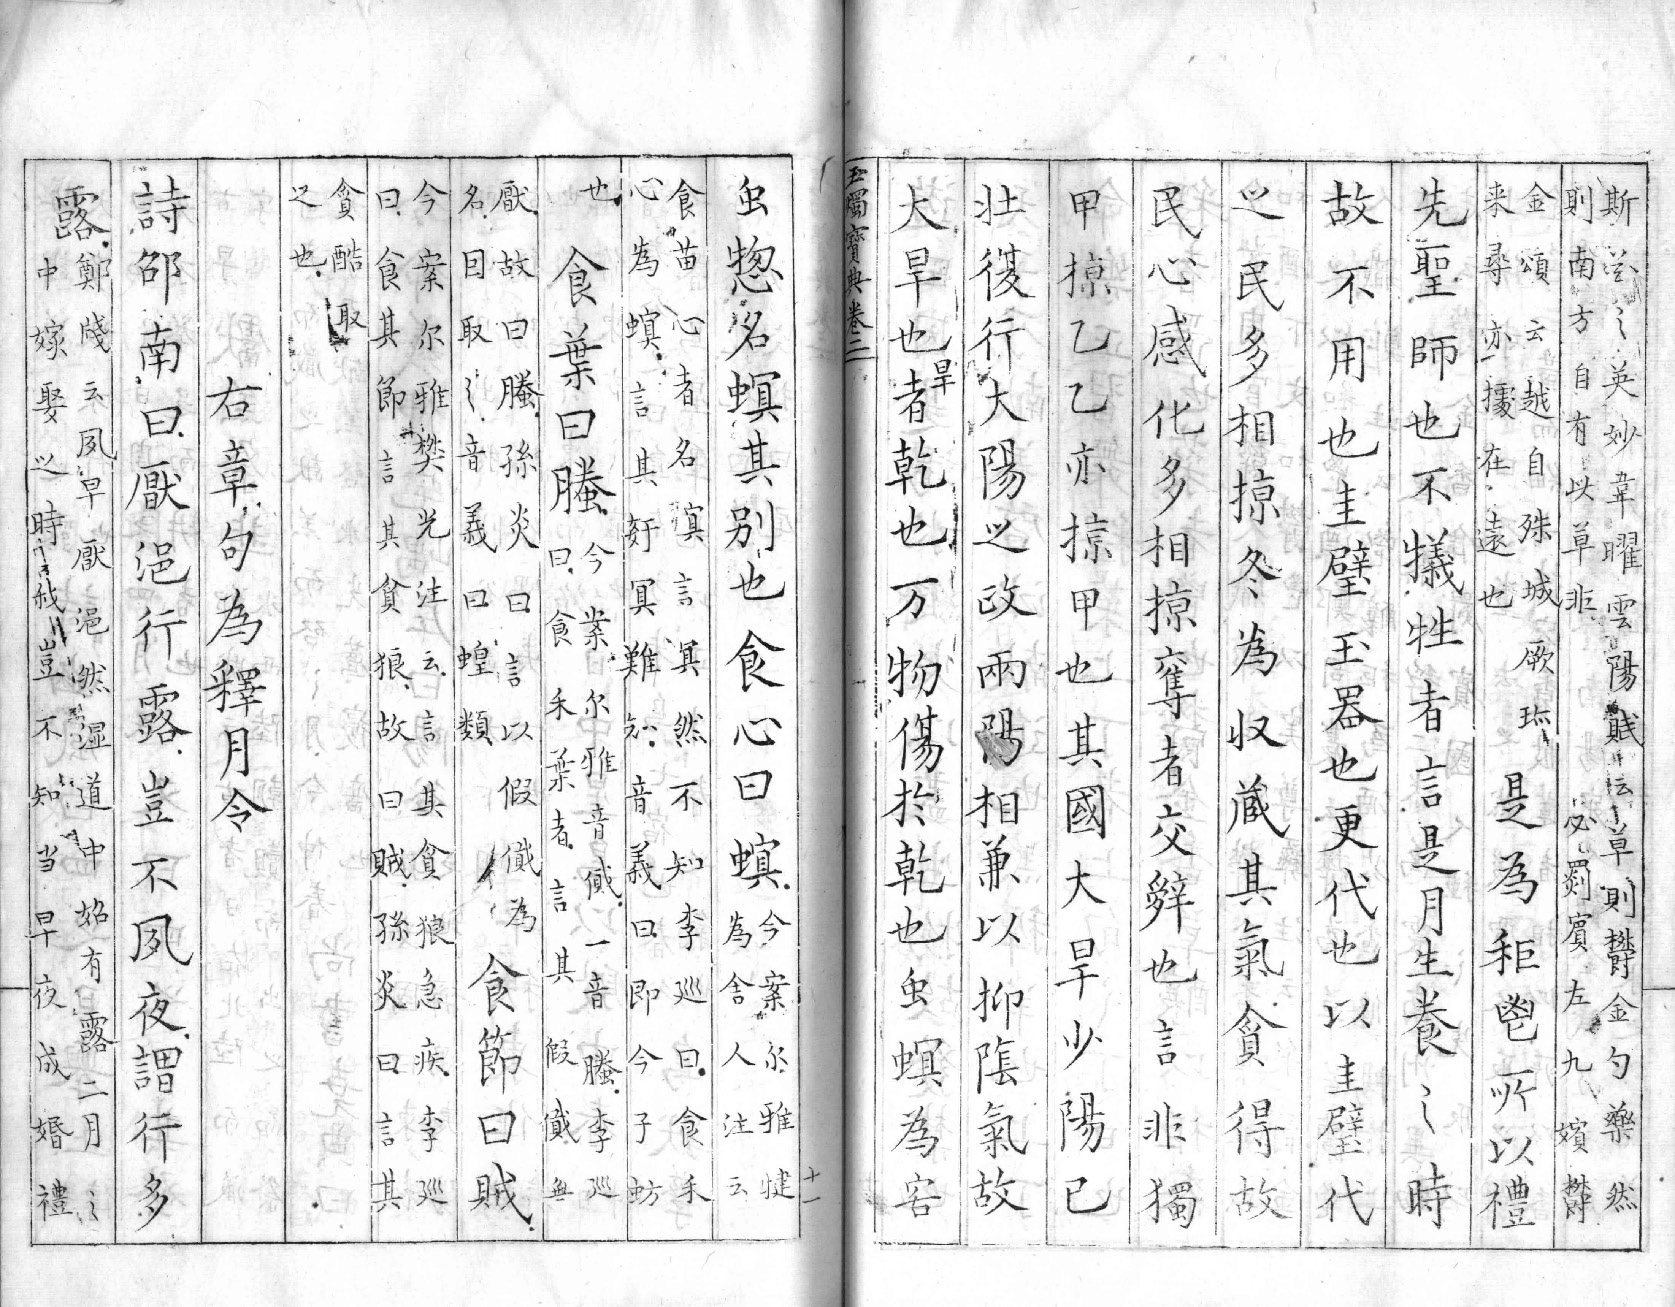 斯 之英妙韋曜雲陽賦云草則欝金勺藥然
則南方自有以草非 必剡賓左九嬪欝
金頌云越自殊城厥珎
来尋亦攄在遠也
是為秬鬯所以禮
先聖師也不犠牲者言是月生養〻時
故不用也圭璧玉器也更代也以圭璧代
之民多相掠冬為収蔵其氣貪得故
民心感化多相掠奪者交辭也言非獨
甲掠乙乙亦掠甲也其國大旱少陽已
壮復行大陽之政兩陽相兼以抑隂氣故
大旱也旱者乾也万物傷於乾也虫螟為害
玉燭寳典巻二
虫惣名螟其别也食心曰螟
今案尓雅犍
為舎人注云
食苗心者名 言冥然不知李巡曰食禾
心為螟言其姧冥難知音義曰即今子蚄
也
食葉曰䘃
今案尓雅音 一音䘃李巡
曰食禾葉者言其假儎無
厭故曰䘃孫炎曰言以假儎為
名目取之音義曰蝗類
食節曰賊
今案尓雅樊光注云言其貪狼急疾李巡
曰食其節言其貪狼故曰賊孫炎曰言其
貪酷取
之也
右章句為釋月令
詩邵南曰厭浥行露豈不夙夜謂行多
露
鄭牋云夙早厭浥然湿道中始有露二月
中嫁娶之時 豈不知当早夜成婚禮
十一